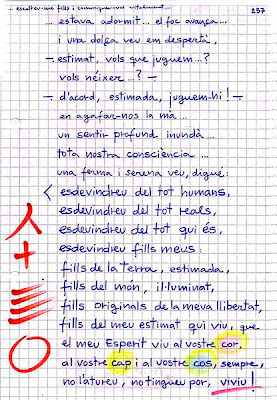 ... escolteu-me fills i comuniqueu-vos
237
... estava adormit... el foc avança...
i una dolça veu em despertà,
- estimat, vols que juguem...?
vols néixer...? -
- d'acord, estimada, juguem-hi! -
en agafar-nos la mà...
un sentir profund inundà...
tota nostra consciència...
una ferma i serena veu, digué:
< esdevindreu del tot humans,
esdevindreu del tot reals,
esdevindreu del tot qui és,
esdevindreu fills meus:
fills de la terra, estimada,
fills del món, il·luminat,
fills originals de la meva llibertat,
fills del meu estimat qui viu, que
el meu Esperit viu al vostre cor,
al vostre cap i al vostre cos, sempre,
no l'atureu, no tingueu por, viviu!